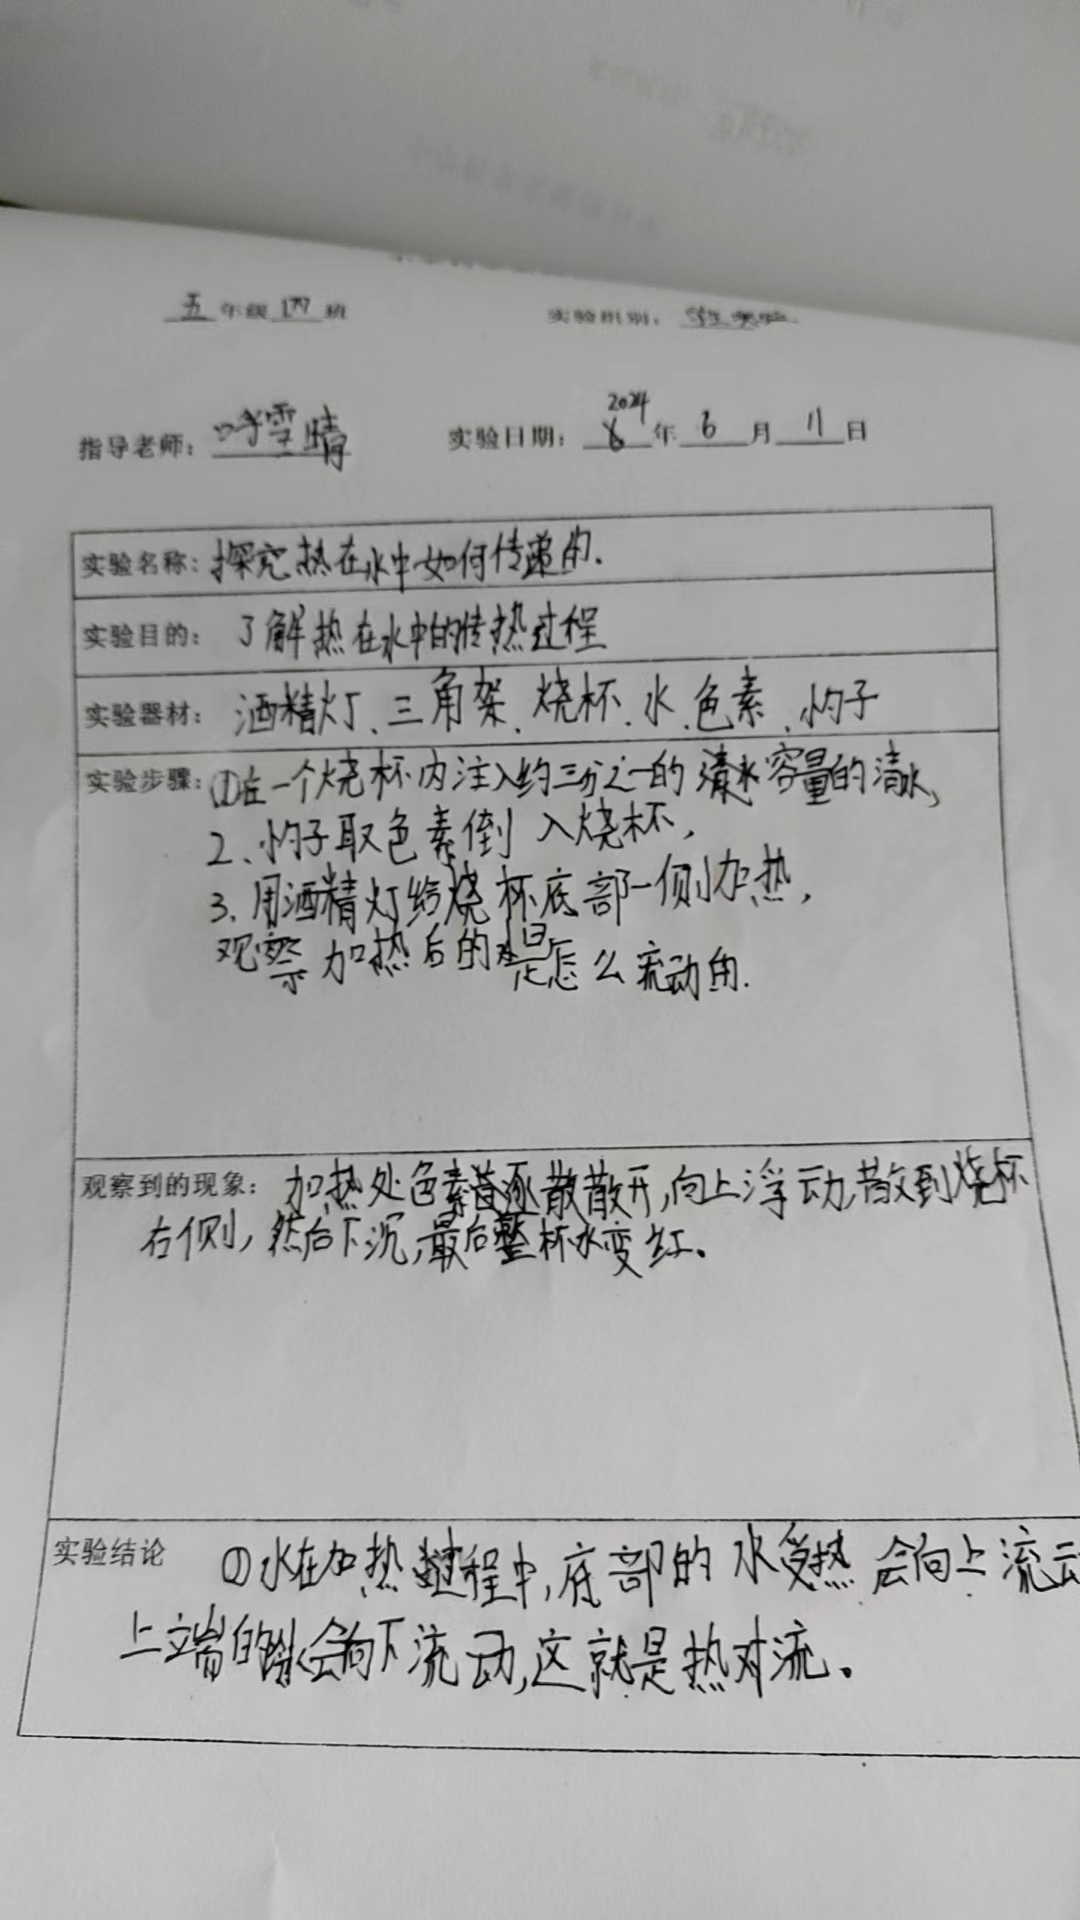 五年级四班 实验组别：学生实验
指导老师：呼雪晴 实验日期：2024年6月11日
实验名称：探究热在水中如何传递的.
实验目的：了解热在水中的传热过程
实验器材：酒精灯、三角架、烧杯、水、色素、灼子
实验步骤：①在一个烧杯内注入约三分之一的清水容量的清水,
2、灼子取色素倒入烧杯,
3.用酒精灯给烧杯底部一侧加热,
观察加热后的水是怎么流动的.
观察到的现象：加热处色素逐散散开,向上浮动,散到烧杯
右侧,然后下沉,最后整杯水变红。
实验结论 ①水在加热过程中,底部的水受热会向上流动
上端的水会向下流动,这就是热对流。